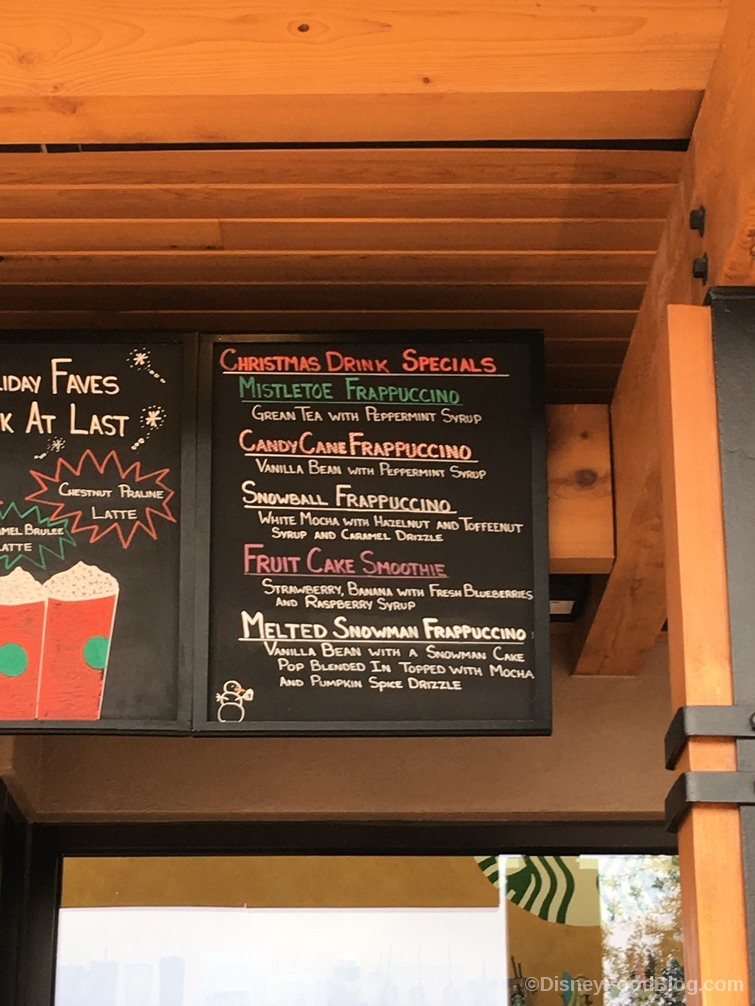 LIDAY FAVES
K AT LAST
CHESTNUT PRALINE
LATTE
MEL BRULEE
LATTE
CHRISTMAS DRINK SPECIALS
MISTLETOE FRAPPUCCINO
GREAN TEA WITH PEPPERMINT SYRUP
CANDY CANE FRAPPUCCINO
VANILLA BEAN WITH PEPPERMINT SYRUP
SNOWBALL FRAPPUCCINO
WHITE MOCHA WITH HAZELNUT AND TOFFEENUT
SYRUP AND CARAMEL DRIZZLE
FRUIT CAKE SMOOTHIE
STRAWBERRY, BANANA WITH FRESH BLUEBERRIES
AND RASPBERRY SYRUP
MELTED SNOWMAN FRAPPUCCINO
VANILLA BEAN WITH A SNOWMAN CAKE
POP BLENDED IN TOPPED WITH MOCHA
AND PUMPKIN SPICE DRIZZLE
©DisneyFoodBlog.com